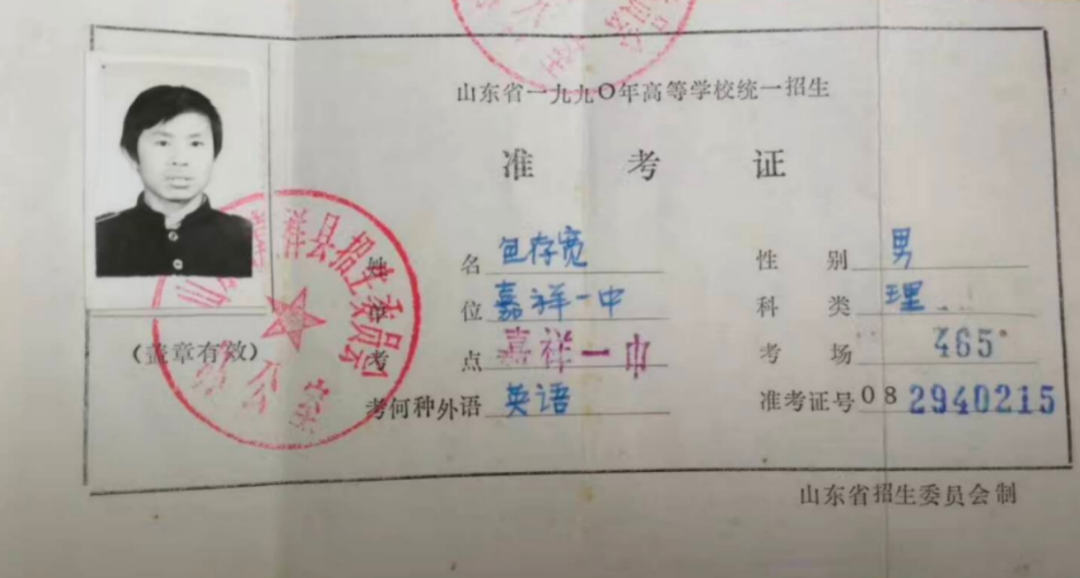 山东省一九九〇年高等学校统一招生
准考证
姓名 包存宽 性别 男
单位 嘉祥一中 科类 理
考点 嘉祥一中 考场 465
考何种外语 英语 准考证号 08 2940215
(盖章有效)
祥县招生委员会
办公室
山东省招生委员会制